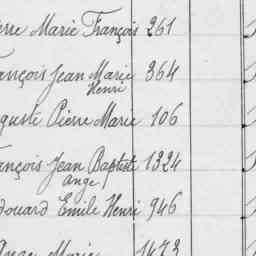 erre Marie François 261
ançois Jean Marie 364
Henri
guste Pierre Marie 106
ançois Jean Baptiste 1324
Ange
douard Emile Henri 946
Ange Marie 1473